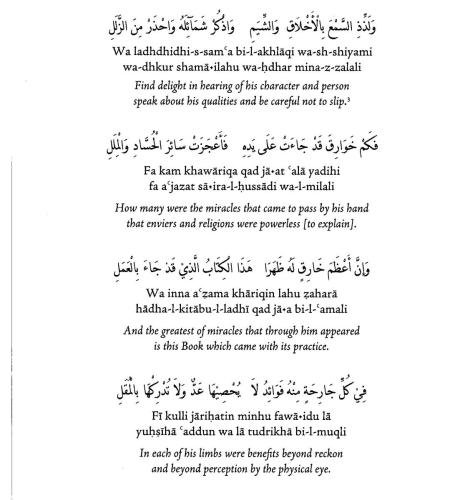 وَلَذِّذِ السَّمْعَ بِالْأَخْلَاقِ وَالشِّيَمِ وَاذْكُرْ شَمَآئِلَهُ وَاحْذَرْ مِنَ الزَّلَلِ
Wa ladhdhidhi-s-samʿa bi-l-akhlāqi wa-sh-shiyami
wa-dhkur shamā·ilahu wa-ḥdhar mina-z-zalali
Find delight in hearing of his character and person
speak about his qualities and be careful not to slip.³
فَكَمْ خَوَارِقَ قَدْ جَاءَتْ عَلَى يَدِهِ فَأَعْجَزَتْ سَائِرَ الْحُسَّادِ وَالْمِلَلِ
Fa kam khawāriqa qad jā·at ʿalā yadihi
fa aʿjazat sā·ira-l-ḥussādi wa-l-milali
How many were the miracles that came to pass by his hand
that enviers and religions were powerless [to explain].
وَإِنَّ أَعْظَمَ خَارِقٍ لَهُ ظَهَرَا هَذَا الْكِتَابُ الَّذِيْ قَدْ جَاءَ بِالْعَمَلِ
Wa inna aʿẓama khāriqin lahu ẓaharā
hādha-l-kitābu-l-ladhī qad jā·a bi-l-ʿamali
And the greatest of miracles that through him appeared
is this Book which came with its practice.
فِيْ كُلِّ جَارِحَةٍ مِنْهُ فَوَائِدُ لَا يُحْصِيْهَا عَدٌّ وَلَا تُدْرِكْهَا بِالْمُقَلِ
Fī kulli jāriḥatin minhu fawā·idu lā
yuḥṣīhā ʿaddun wa lā tudrikhā bi-l-muqli
In each of his limbs were benefits beyond reckon
and beyond perception by the physical eye.